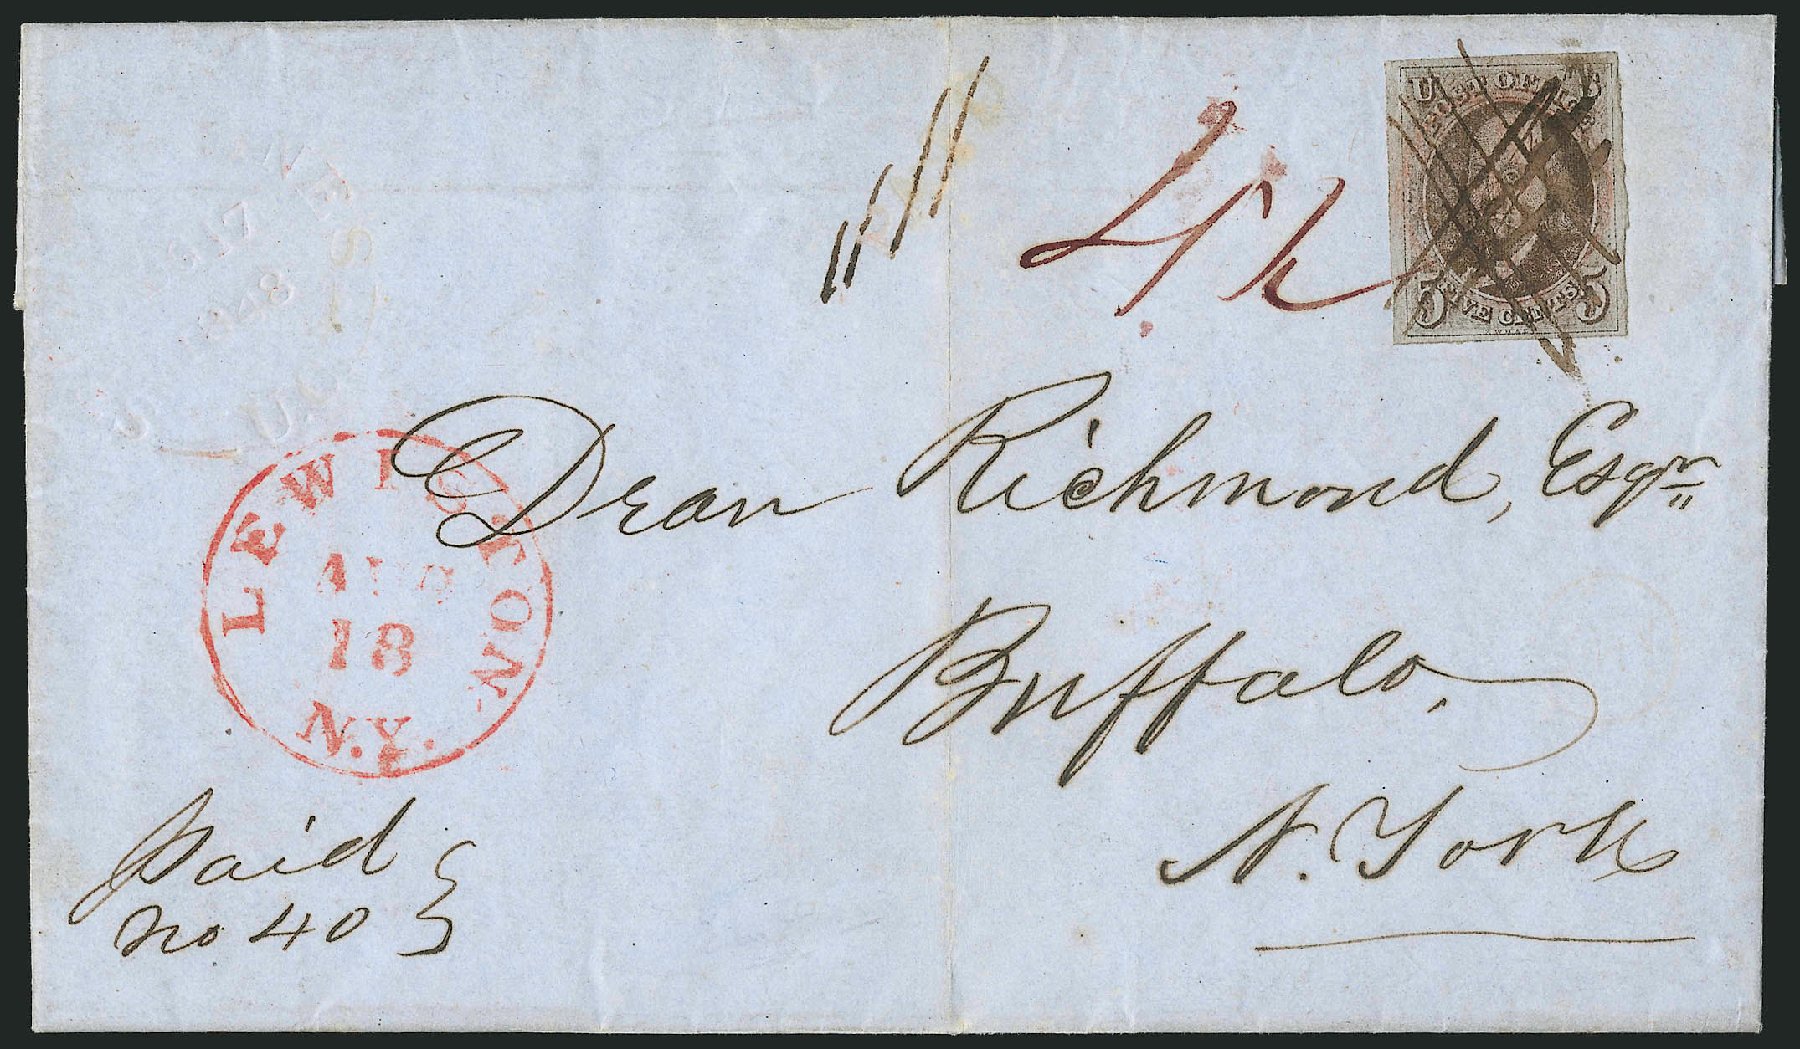 U S
POST OFFICE
5 FIVE CENTS 5
42
Dean Richmond, Esqr
Buffalo,
N. York
LEWISTON
AUG
18
N.Y.
Paid
no 40